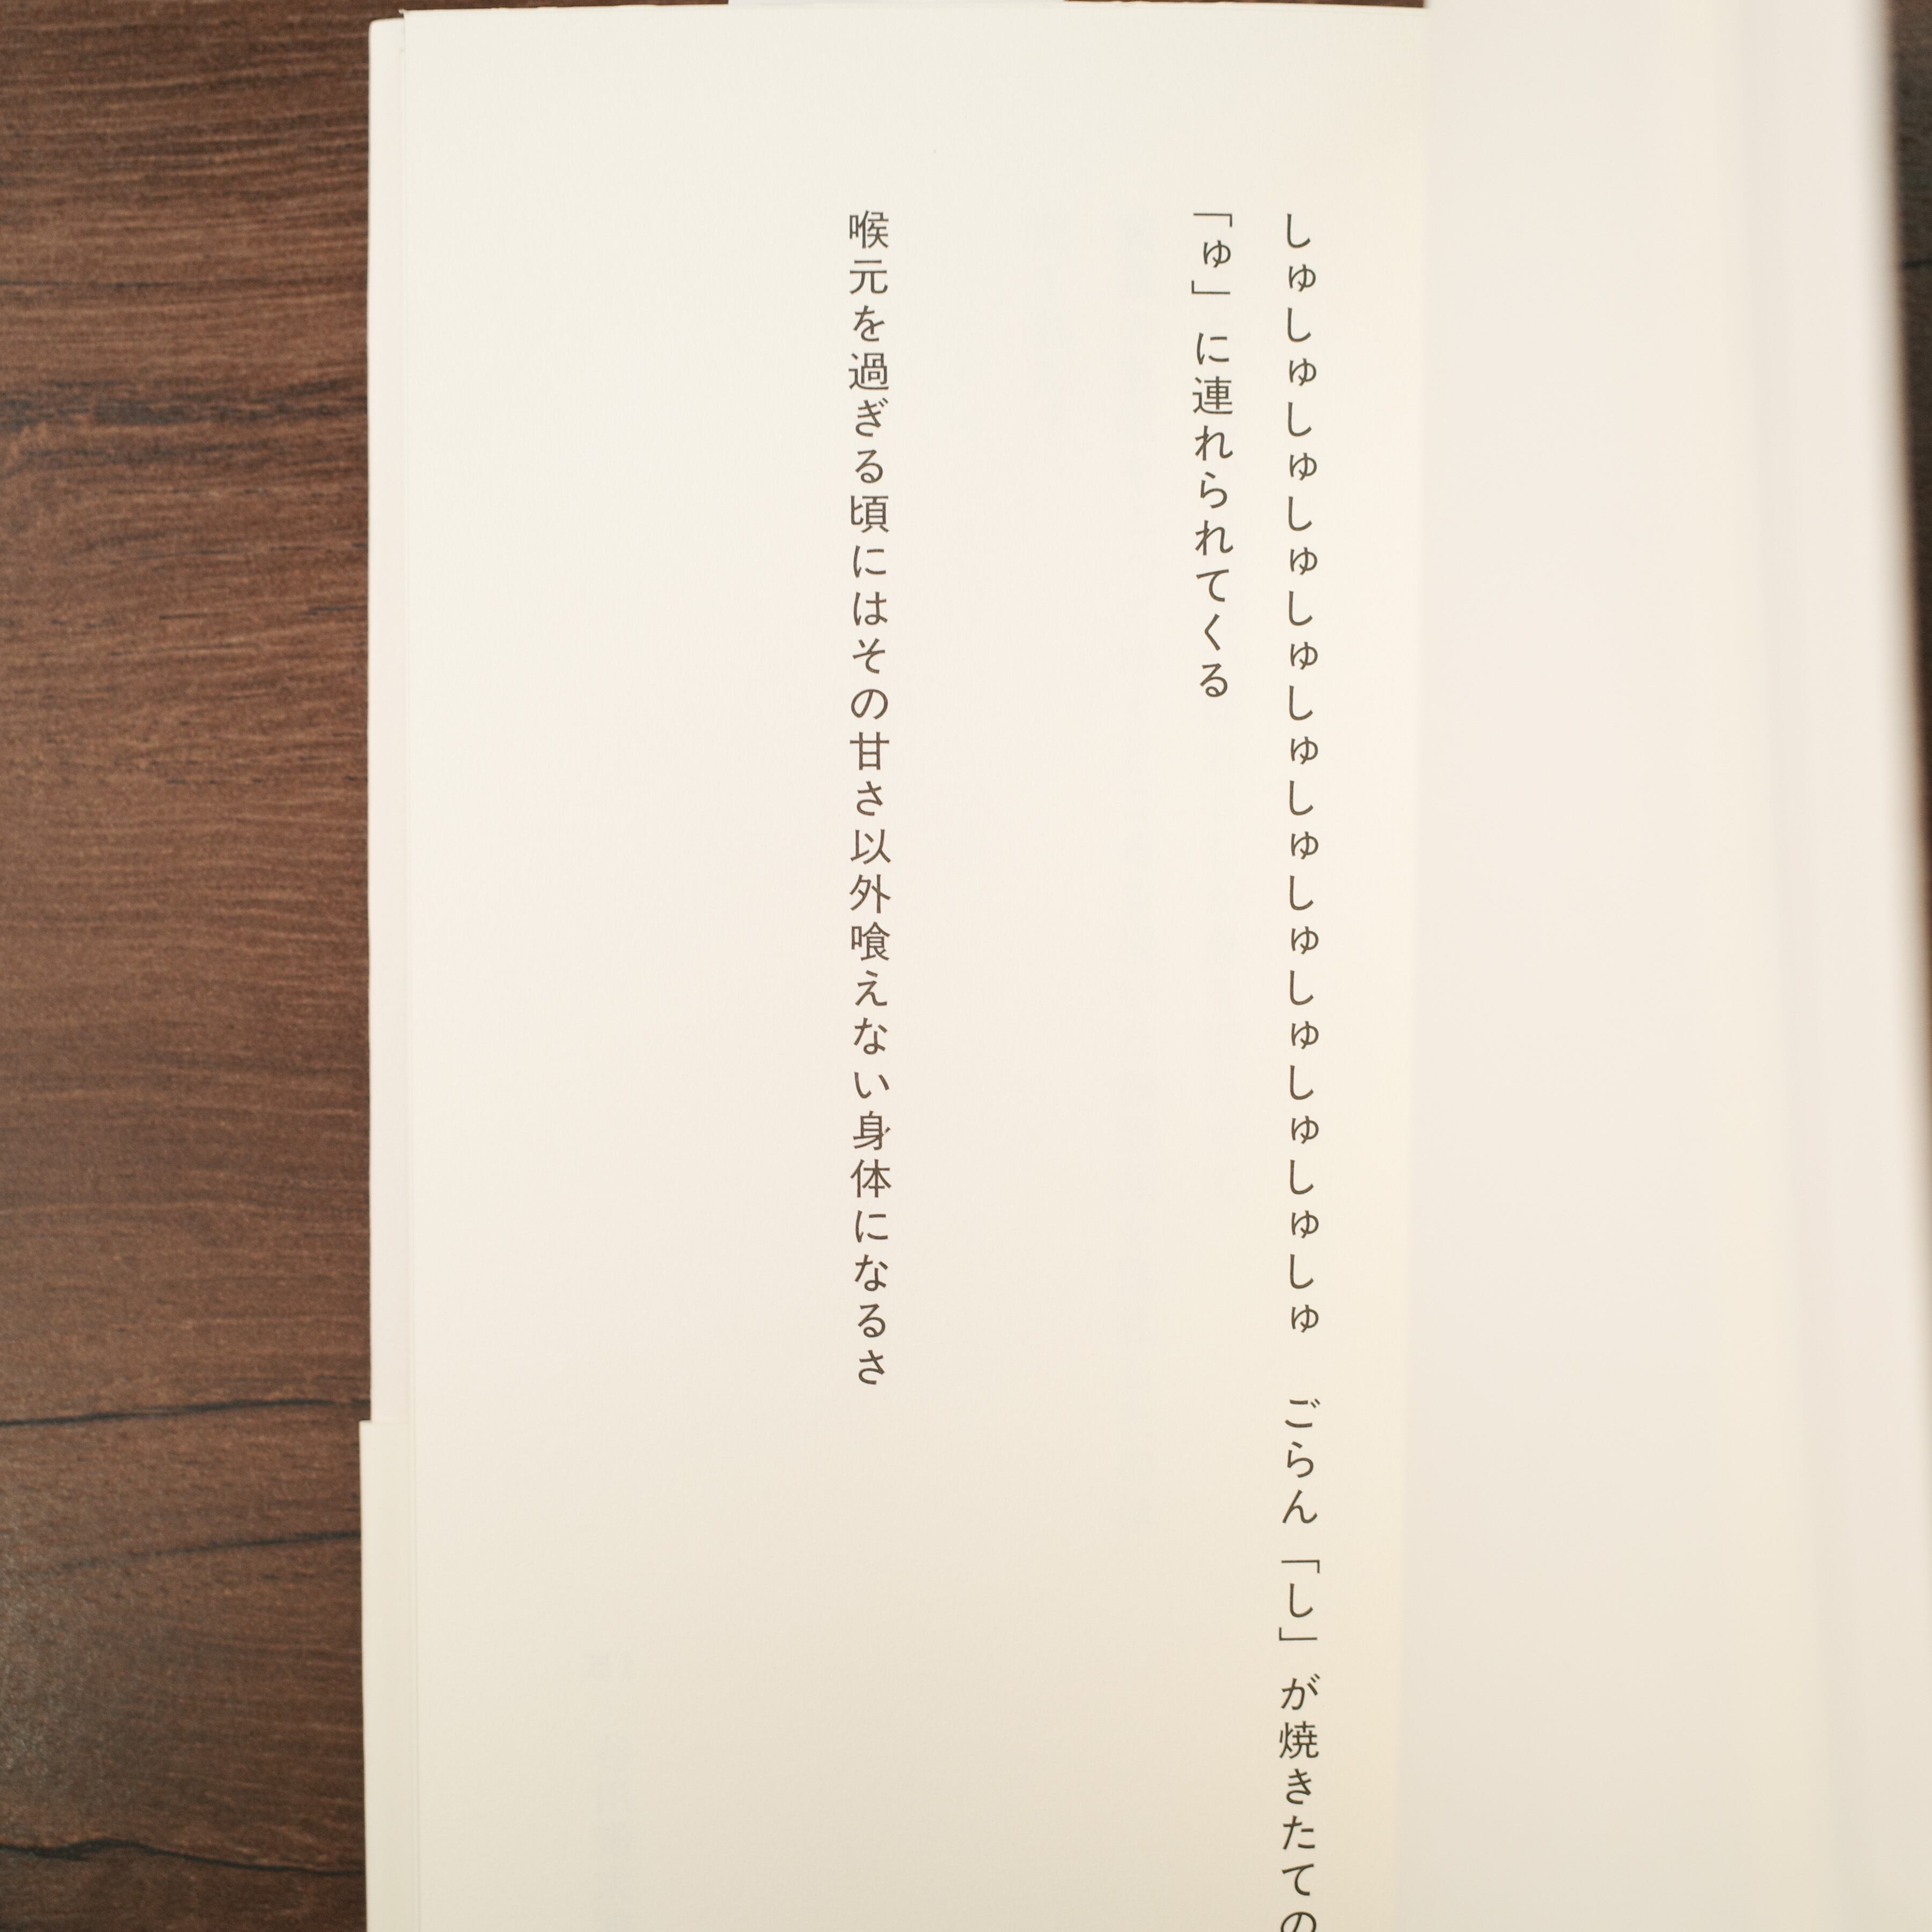 しゅしゅしゅしゅしゅしゅしゅしゅしゅしゅしゅしゅ　ごらん「し」が焼きたての
「ゅ」に連れられてくる
喉元を過ぎる頃にはその甘さ以外喰えない身体になるさ